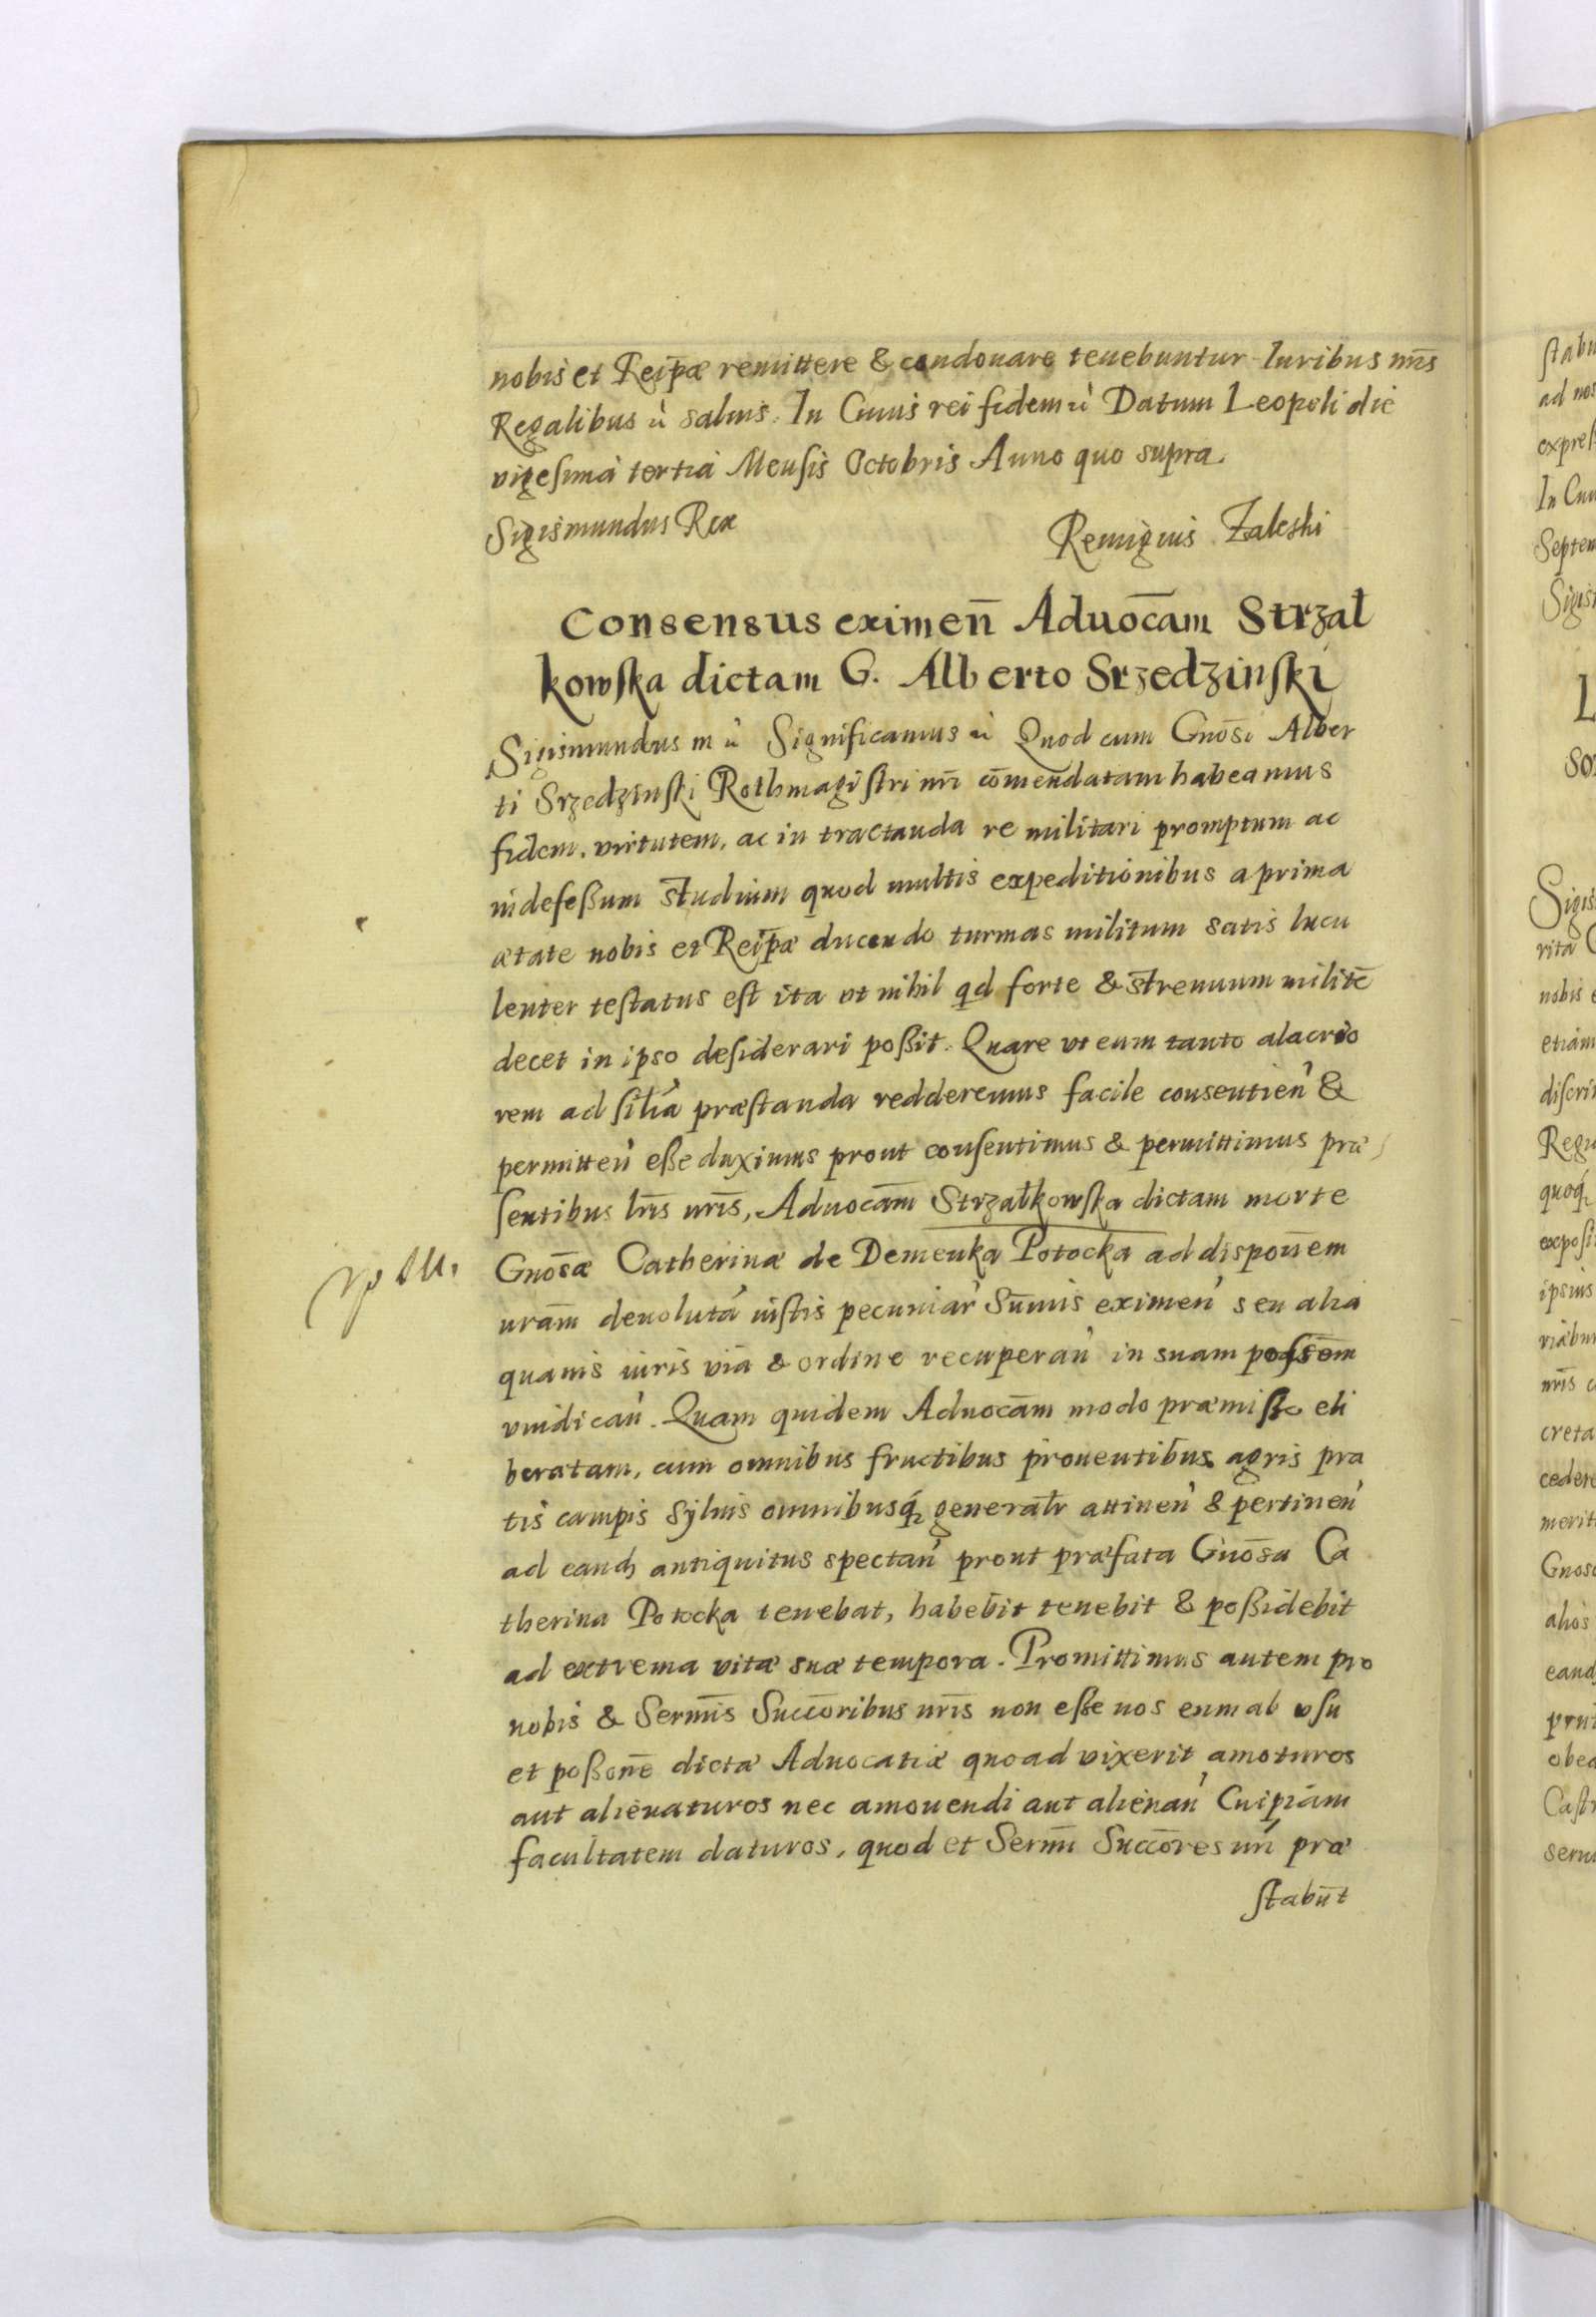 nobis et Reip̃æ remittere & condonare tenebuntur Iuribus nr̃is
Regalibus ũ saluis. In Cuius rei fidem ũ Datum Leopoli die
vigesima tertia Mensis Octobris Anno quo supra.
Sigismundus Rex
Remigius Zaleski
Consensus eximen̄ Aduoc̄am Strzał
kowſka dictam G. Alberto Srzedzinſki
Sigismundus m ũ Significamus ũ Quod cum Gnōsi Alber
ti Srzedzinſki Rothmagiſtri nr̃i cōmendatam habeamus
fidem, virtutem, ac in tractanda re militari promptum ac
indefeßum studium quod multis expeditionibus a prima
ætate nobis et Reip̃æ ducendo turmas militum satis lucu
lenter teſtatus eſt ita vt nihil qd forte & strenuum militē
decet in ipso deſiderari poßit. Quare vt eum tanto alacrio
rem ad ſil̃ia præſtanda redderemus facile consentien̄ &
permitten̄ eße duximus prout conſentimus & permittimus præ
ſentibus lr̃is nr̃is, Aduocām Strzałkowſka dictam morte
Gnōsæ Catherinæ de Demenka Potocka ad disponēm
nrām deuolutā iuſtis pecuniar̃ Sum̄is eximen̄ seu alia
quauis iuris via & ordine recuperan̄ in suam poſsēom
vindican̄. Quam quidem Aduocām modo præmiſſo eli
beratam, cum omnibus fructibus prouentibus agris pra
tis campis Syluis omnibusq́ generalr̃ attinen̄ & pertinen̄
ad eand antiquitus spectan̄ prout præfata Gnōsa Ca
therina Potocka tenebat, habebit tenebit & poßidebit
ad extrema vitæ suæ tempora. Promittimus autem pro
nobis & Serm̄is Succōribus nr̃is non eße nos eum ab vſu
et poßonē dictæ Aduocatiæ quoad vixerit amoturos
aut alienaturos nec amouendi aut alienan̄ Cuipiam
facultatem daturos, quod et Serm̄i Succōres nr̃i præ
ſtabūt